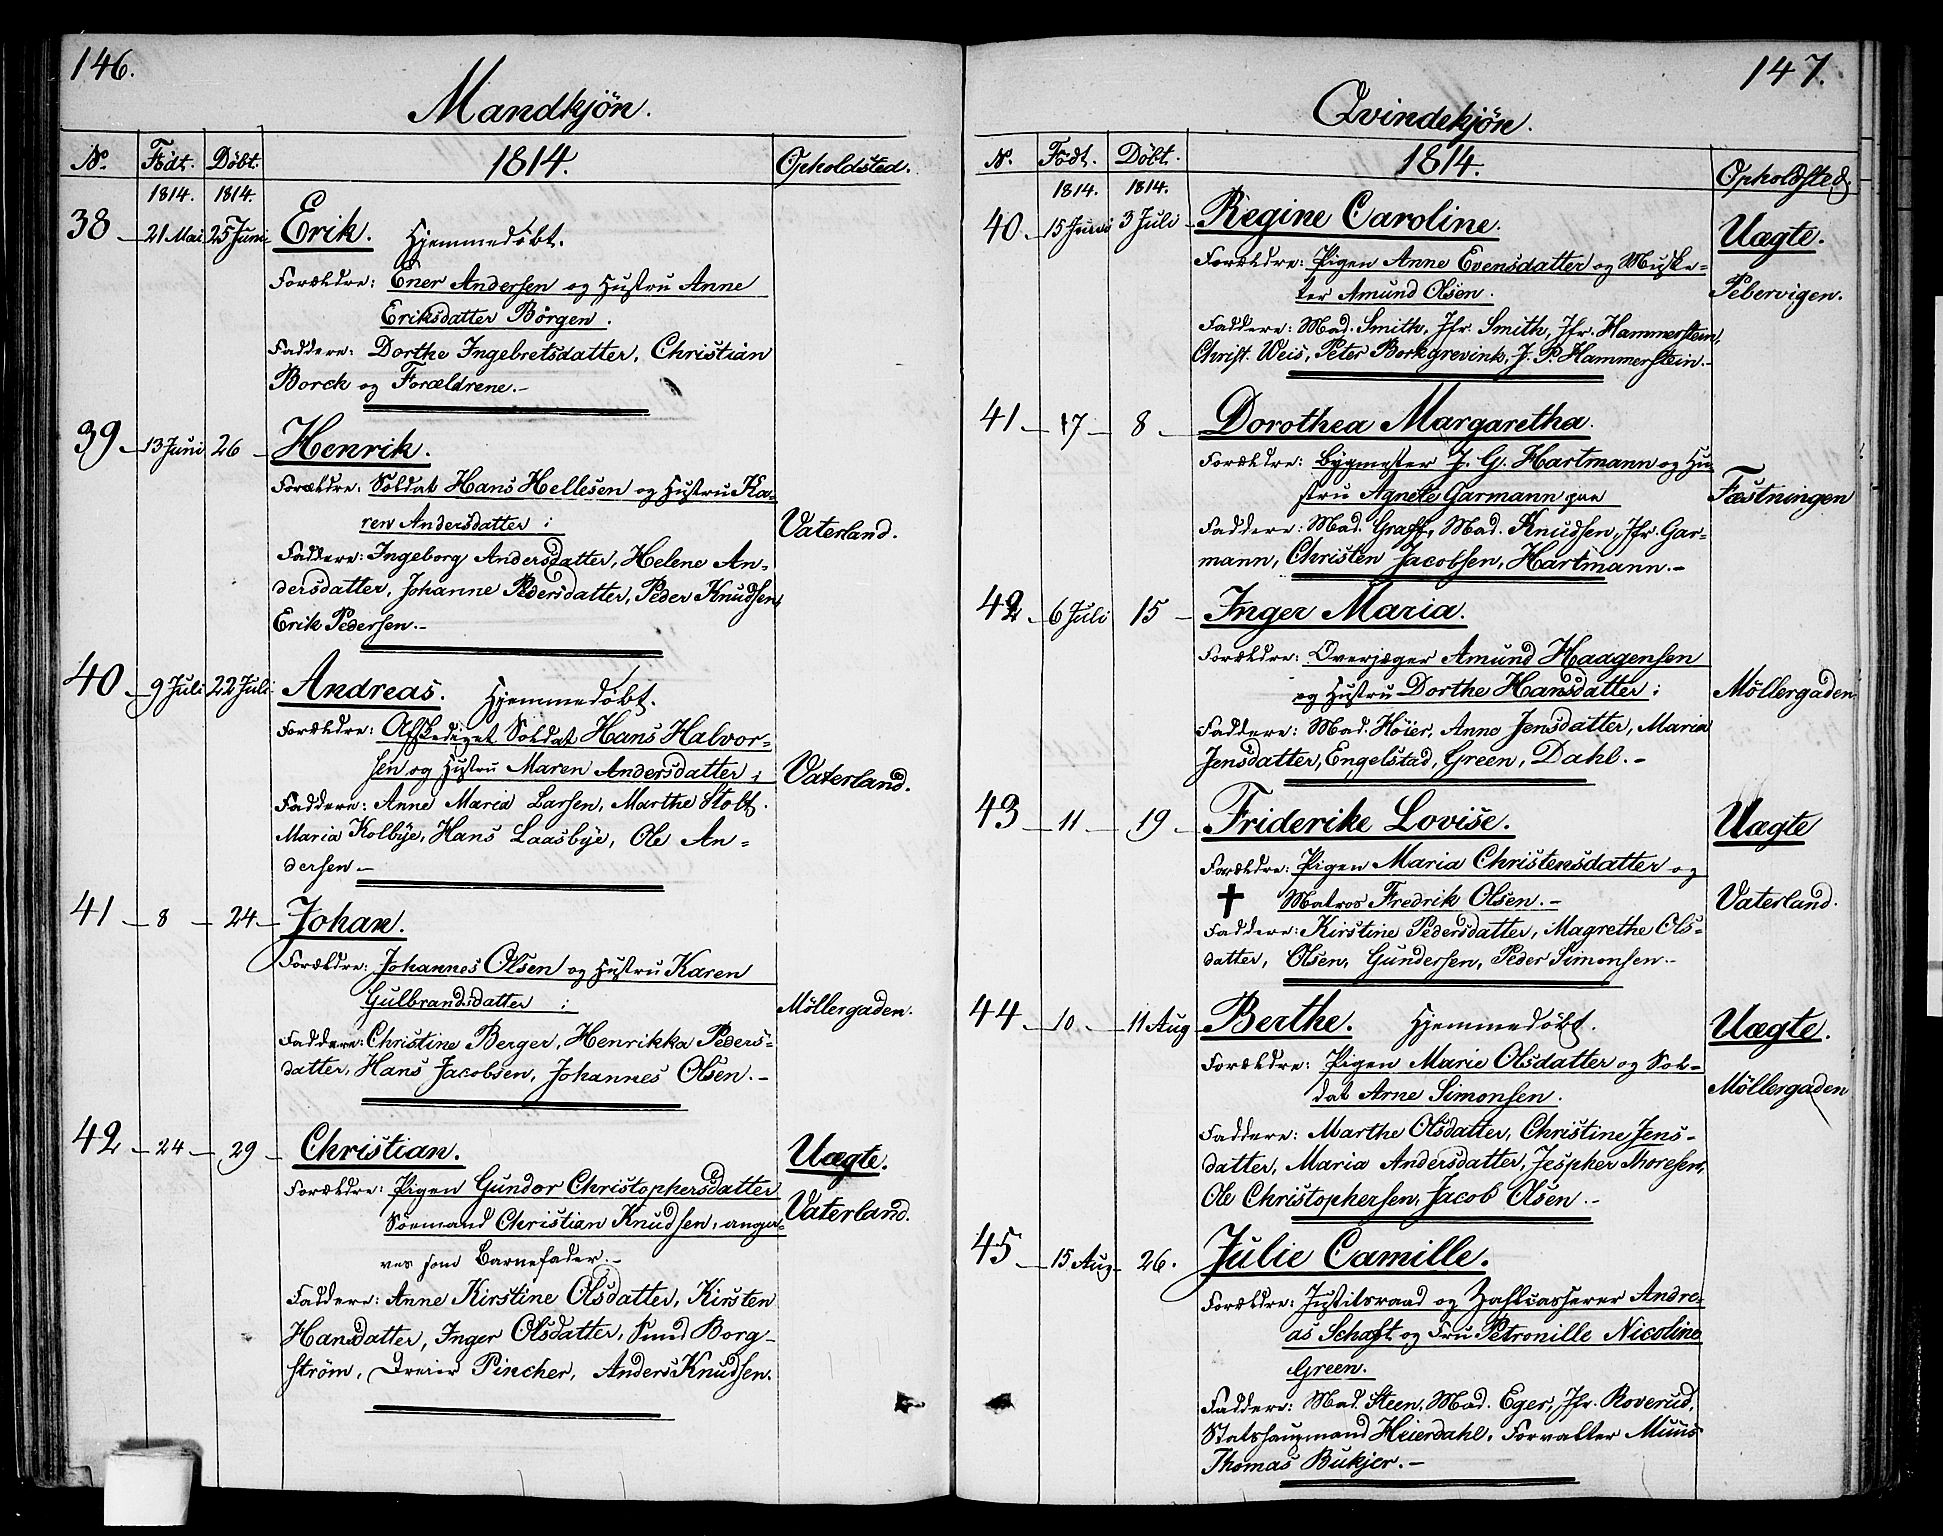 146.
Mandkjön.
N. Födt. Döbt. 1814. Opholdsted.
1814. 1814.
38 21 Mai 25 Juni Erik. Hjemmedöbt.
Forældre: Ener Andersen og Hustru Anne
Eriksdatter Börgen.
Faddere: Dorthe Ingebretsdatter, Christian
Borck og Forældrene.-
39 13 Juni 26 Henrik.
Forældre: Soldat Hans Hellesen og Hustru Ka-
ren Andersdatter: Vaterland.
Faddere: Ingeborg Andersdatter, Helene An-
dersdatter, Johanne Pedersdatter, Peder Knudsen,
Erik Pedersen.-
40 9 Juli 22 Juli Andreas. Hjemmedöbt.
Forældre: Afskediget Soldat Hans Halvor-
sen og Hustru Maren Andersdatter: Vaterland.
Faddere: Anne Maria Larsen, Marthe Stobt.
Maria Kolbye, Hans Laasbye, Ole An-
dersen.-
41 8 24 Johan.
Forældre: Johannes Olsen og Hustru Karen
Gulbrandsdatter: Möllergaden.
Faddere: Christine Berger, Henrikka Peders-
datter, Hans Jacobsen, Johannes Olsen.-
42 24 29 Christian. Uægte.
Forældre: Pigen Gundor Christophersdatter Vaterland.
Söemand Christian Knudsen, angi-
ves som Barnefader.-
Faddere: Anne Kirstine Olsdatter, Kirsten
Hansdatter, Inger Olsdatter, Borg-
ström, Pincher, Anders Knudsen.
147.
Qvindekjön.
N. Födt. Döbt. 1814. Opholdsted.
1814. 1814.
40 15 Juni 3 Juli Regine Caroline. Uægte.
Forældre: Pigen Anne Evensdatter og Muske-
ter Amund Olsen. Pebervigen.
Faddere: Mad. Smith, Jfr. Smith, Jfr. Hammerstein,
Christ. Weis, Peter Borkgrevink, J. P. Hammerstein.-
41 17 8 Dorothea Margaretha.
Forældre: Bygmester J. G. Hartmann og Hu-
stru Agnete Garmann Fæstningen
Faddere: Mad. Graff, Mad. Knudsen, Jfr. Gar-
mann, Christen Jacobsen, Hartmann.-
42 6 Juli 15 Inger Maria.
Forældre: Overjæger Amund Haagensen
og Hustru Dorthe Hansdatter: Möllergaden
Faddere: Mad. Höier, Anne Jensdatter, Maria
Jensdatter, Engelstad, Green, Dahl.-
43 11 19 Friderike Lovise. Uægte
Forældre: Pigen Maria Christensdatter og
† Matros Fredrik Olsen.- Vaterland.
Faddere: Kirstine Pedersdatter, Magrethe Ols-
datter, Olsen, Gundersen, Peder Simonsen.-
44 10 11 Aug Berthe. Hjemmedöbt. Uægte.
Forældre: Pigen Marie Olsdatter og Sol-
dat Arne Simonsen. Möllergaden
Faddere: Marthe Olsdatter, Christine Jens-
datter, Maria Andersdatter, Jespher Moresen,
Ole Christophersen, Jacob Olsen.-
45 15 Aug 26. Julie Camille.
Forældre: Justitsraad og Zahlcasserer Andre-
as Schaft og Fru Petronille Nicoline
Green.
Faddere: Mad. Steen, Mad. Eger, Jfr. Roverud,
Statshauptmand Heierdahl, Forvalter Muus
Thomas Bukjer.-